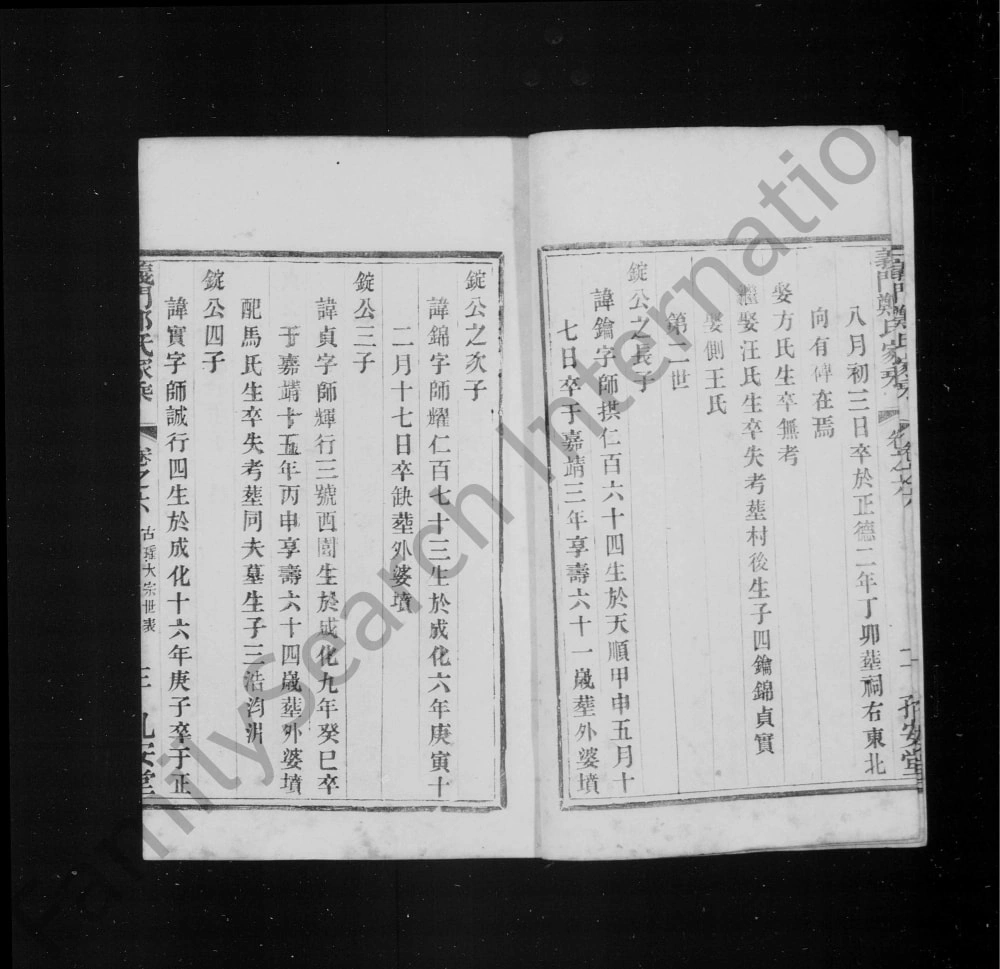 義門鄭氏家乘
卷之六
二
孔安堂
八月初三日卒於正德二年丁卯塟祠右東北
向有碑在焉
娶方氏生卒無考
繼娶汪氏生卒失考塟村後生子四鑰錦貞實
娶側王氏
第二世
錠公之長子
諱鑰字師拱仁百六十四生於天順甲申五月十
七日卒于嘉靖三年享壽六十一歲塟外婆墳
錠公之次子
諱錦字師耀仁百七十三生於成化六年庚寅十
二月十七日卒缺塟外婆墳
錠公三子
諱貞字師輝行三號西園生於成化九年癸巳卒
于嘉靖十五年丙申享壽六十四歲塟外婆墳
配馬氏生卒失考塟同夫墓生子三浩洵
錠公四子
諱實字師誠行四生於成化十六年庚子卒于正
義門鄭氏家乘
卷之六
古瑾大宗世表
三
孔安堂
FamilySearch Internatio